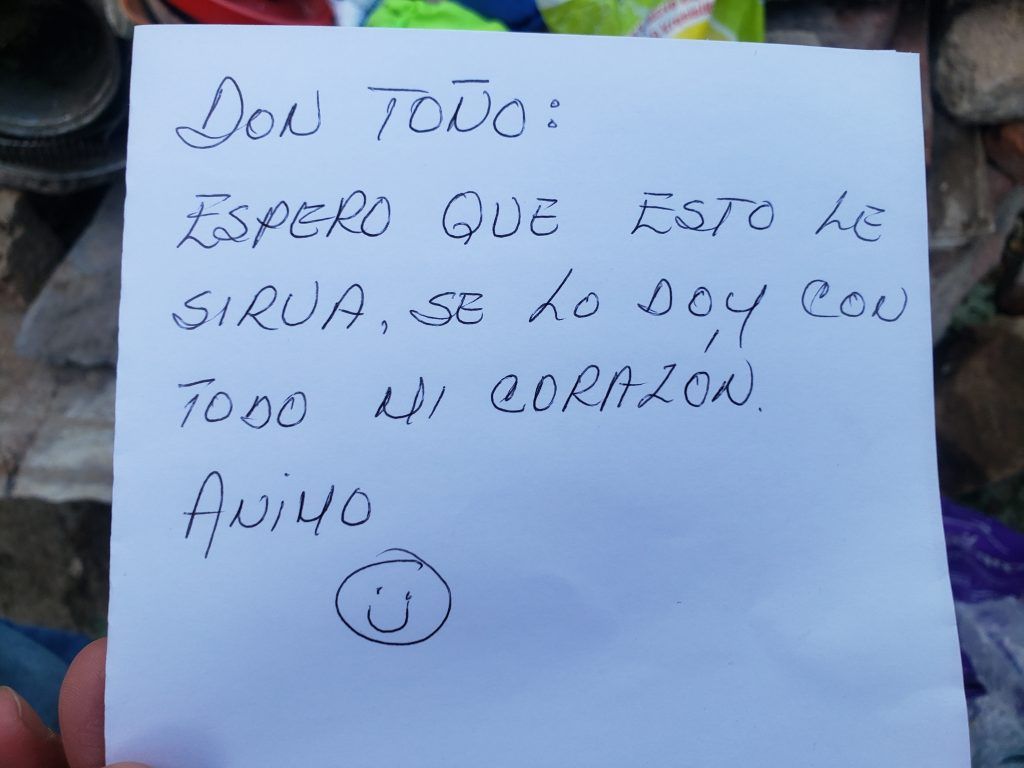 DON TOÑO:
ESPERO QUE ESTO LE
SIRVA, SE LO DOY CON
TODO MI CORAZÓN.
ANIMO